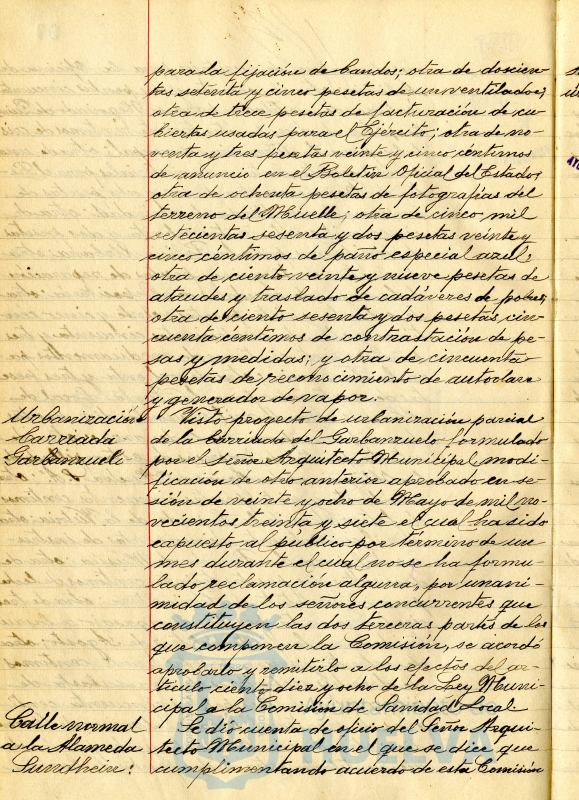 para la fijación de bandos; otra de doscien-
tas setenta y cinco pesetas de un ventilador;
otra de trece pesetas de facturación de cu-
biertas usadas para el Ejército; otra de no-
venta y tres pesetas veinte y cinco céntimos
de anuncio en el Boletín Oficial del Estado;
otra de ochenta pesetas de fotografías del
terreno del Muelle; otra de cinco mil
setecientas sesenta y dos pesetas veinte y
cinco céntimos de paño especial azul;
otra de ciento veinte y nueve pesetas de
ataudes y traslado de cadáveres de pobres;
otra de ciento sesenta y dos pesetas cin-
cuenta céntimos de contrastación de pe-
sas y medidas; y otra de cincuenta
pesetas de reconocimiento de autoclave
y generador de vapor.
Urbanización
Barriada
Garbanzuelo
Visto proyecto de urbanización parcial
de la barriada del Garbanzuelo formulado
por el Señor Arquitecto Municipal modi-
ficación de otro anterior aprobado en se-
sión de veinte y ocho de Mayo de mil no-
vecientos treinta y siete el cual ha sido
expuesto al público por término de un
mes durante el cual no se ha formu-
lado reclamación alguna, por unani-
midad de los señores concurrentes que
constituyen las dos terceras partes de los
que componen la Comisión, se acordó
aprobarlo y remitirlo a los efectos del ar-
tículo ciento diez y ocho de la Ley Muni-
cipal a la Comisión de Sanidad Local
Calle normal
a la Alameda
Sundhein:
Se dió cuenta de oficio del Señor Arqui-
tecto Municipal en el que se dice que
cumplimentando acuerdo de esta Comisión
HUELVA